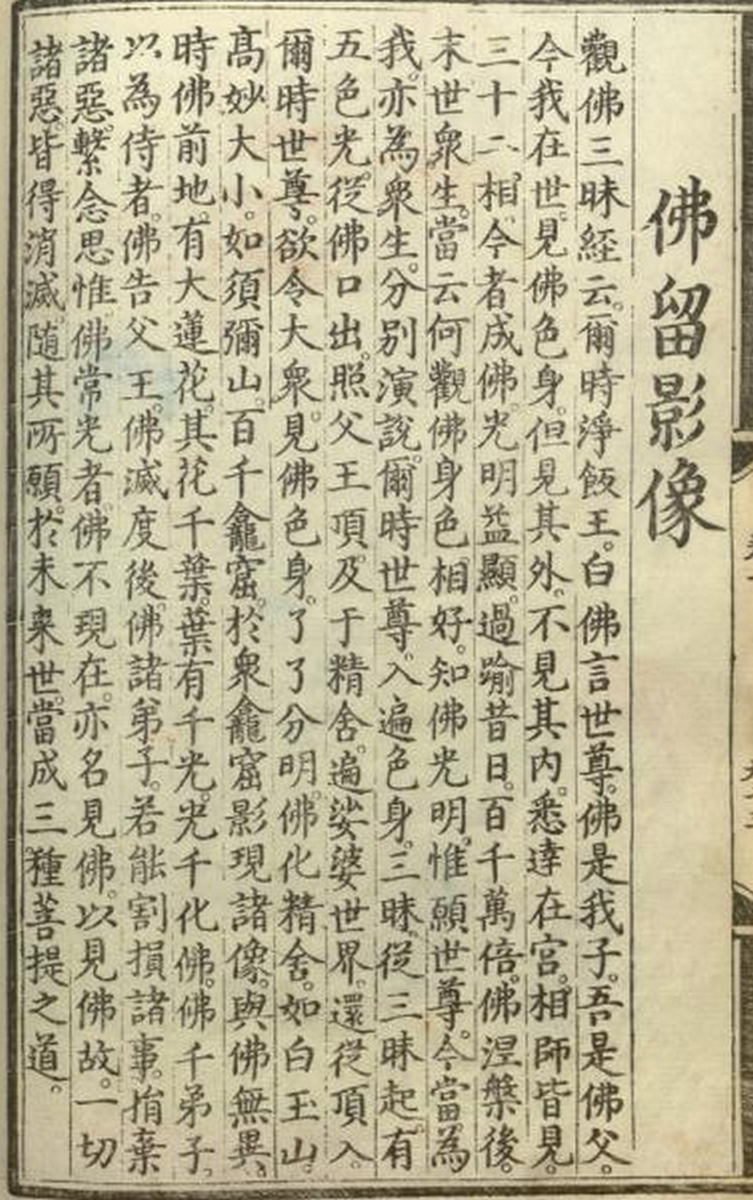 佛留影像
觀佛三昧経云。爾時淨飯王。白佛言世尊。佛是我子。吾是佛父。
今我在世。見佛色身。但見其外。不見其内。悉達在宮。相師皆見。
三十二相。今者成佛。光明益顯。過踰昔日。百千萬倍。佛涅槃後。
末世衆生。當云何觀佛身色相好。知佛光明。惟願世尊。今當為
我。亦為衆生。分别演說。爾時世尊。入遍色身。三昧。從三昧起。有
五色光。從佛口出。照父王頂。及于精舍。遍娑婆世界。還從頂入。
爾時世尊。欲令大衆。見佛色身。了了分明。佛化精舍。如白玉山。
髙妙大小。如須彌山。百千龕窟。於衆龕窟影現諸像。與佛無異。
時佛前地。有大蓮花。其花千葉。葉有千光。光千化佛。佛千弟子。
以為侍者。佛告父王。佛滅度後。佛諸弟子。若能割損諸事。捐棄
諸惡。繫念思惟佛常光者。佛不現在。亦名見佛。以見佛故。一切
諸惡。皆得消滅。随其所願。於未来世。當成三種菩提之道。